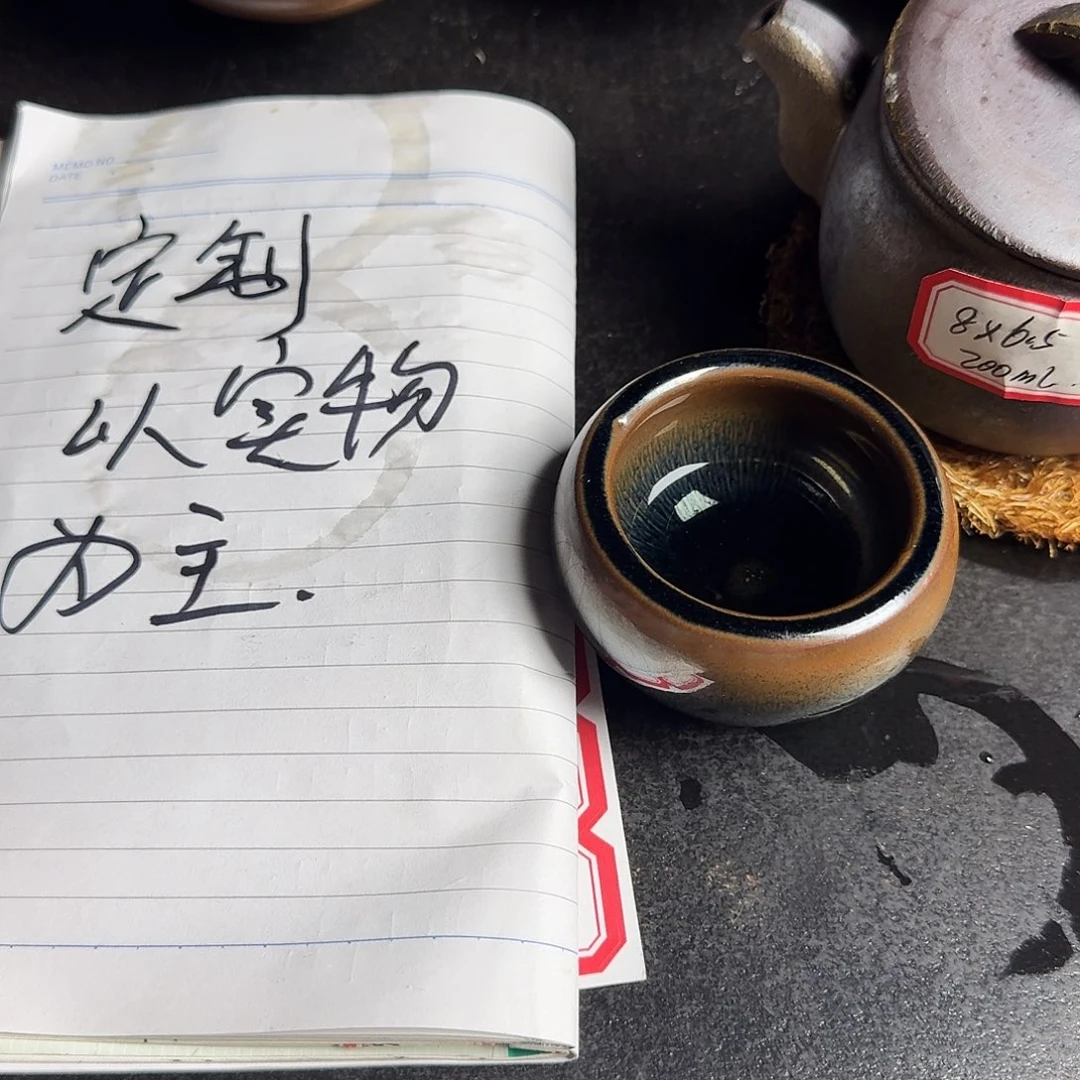 MEMO NO.
DATE
定制
以实物
为主.
8x6.5
200ml.